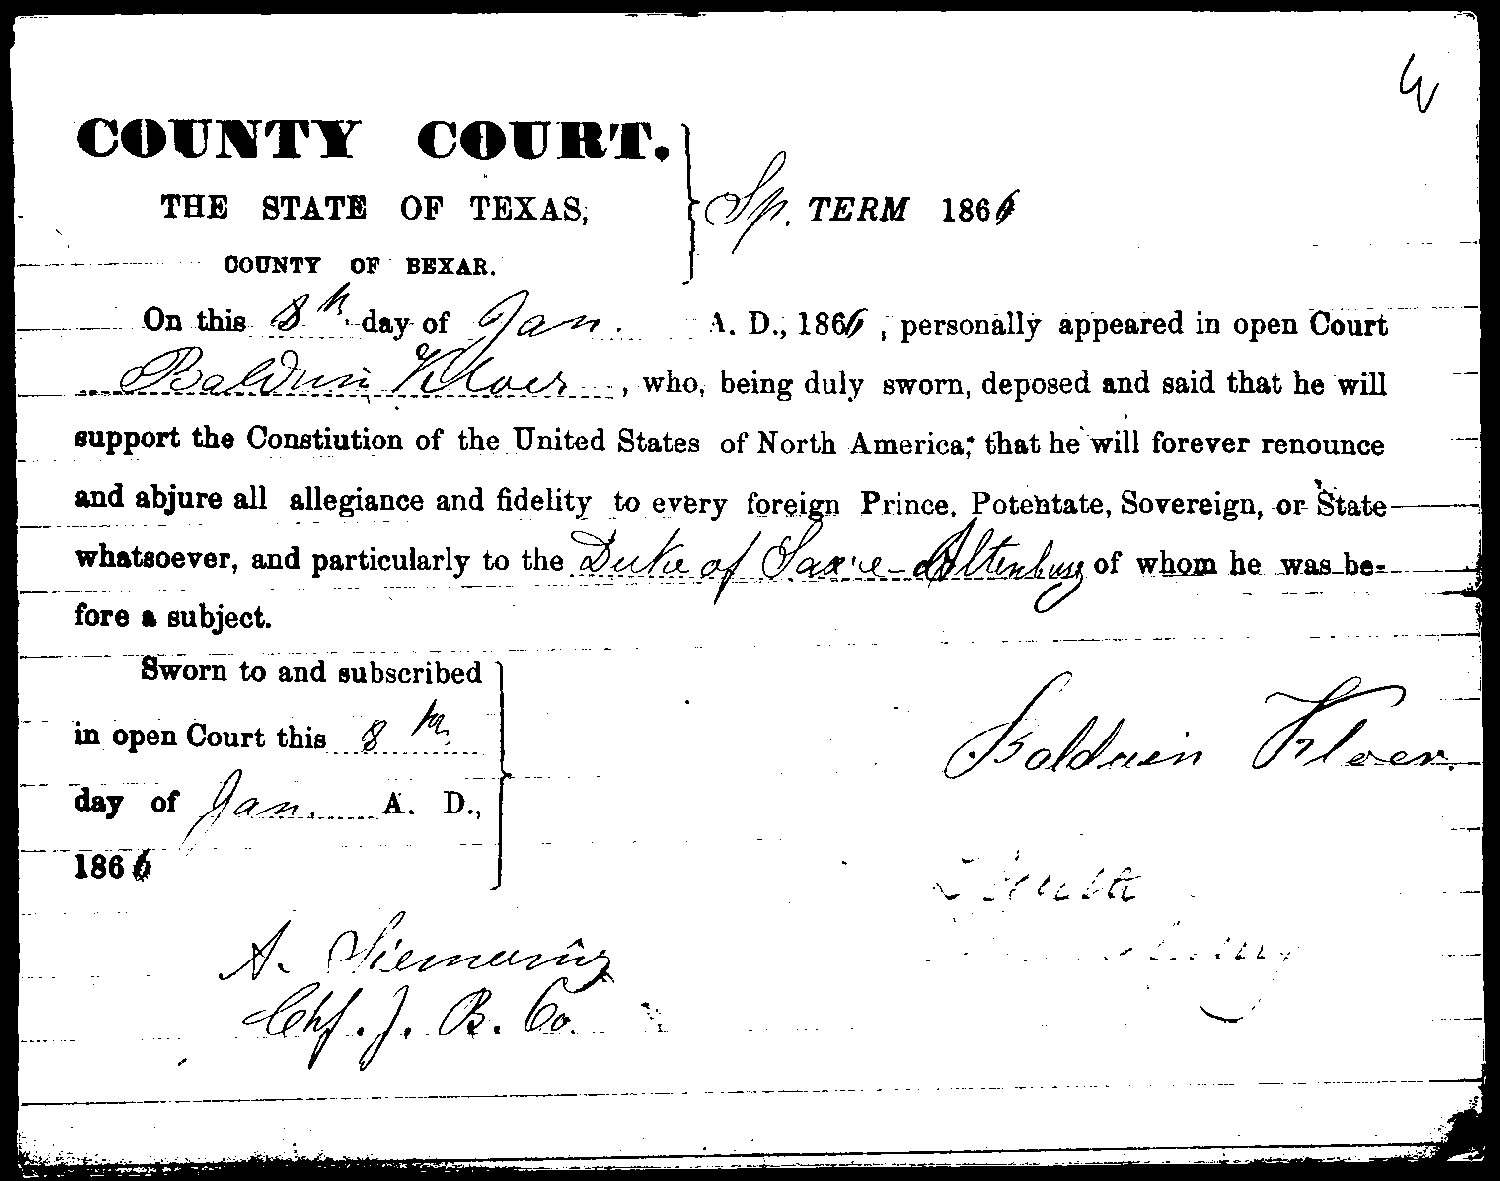 COUNTY COURT.
THE STATE OF TEXAS,
COUNTY OF BEXAR.
Sp. TERM 1866
On this 8th day of Jan. A. D., 1866, personally appeared in open Court
Baldwin Kloer, who, being duly sworn, deposed and said that he will
support the Constiution of the United States of North America; that he will forever renounce
and abjure all allegiance and fidelity to every foreign Prince, Potentate, Sovereign, or State
whatsoever, and particularly to the Duke of Saxe-Altenburg of whom he was be-
fore a subject.
Sworn to and subscribed
in open Court this 8th
day of Jan. A. D.,
1866
Baldwin Kloer.
A. Siemering
Chf. J. B. Co.